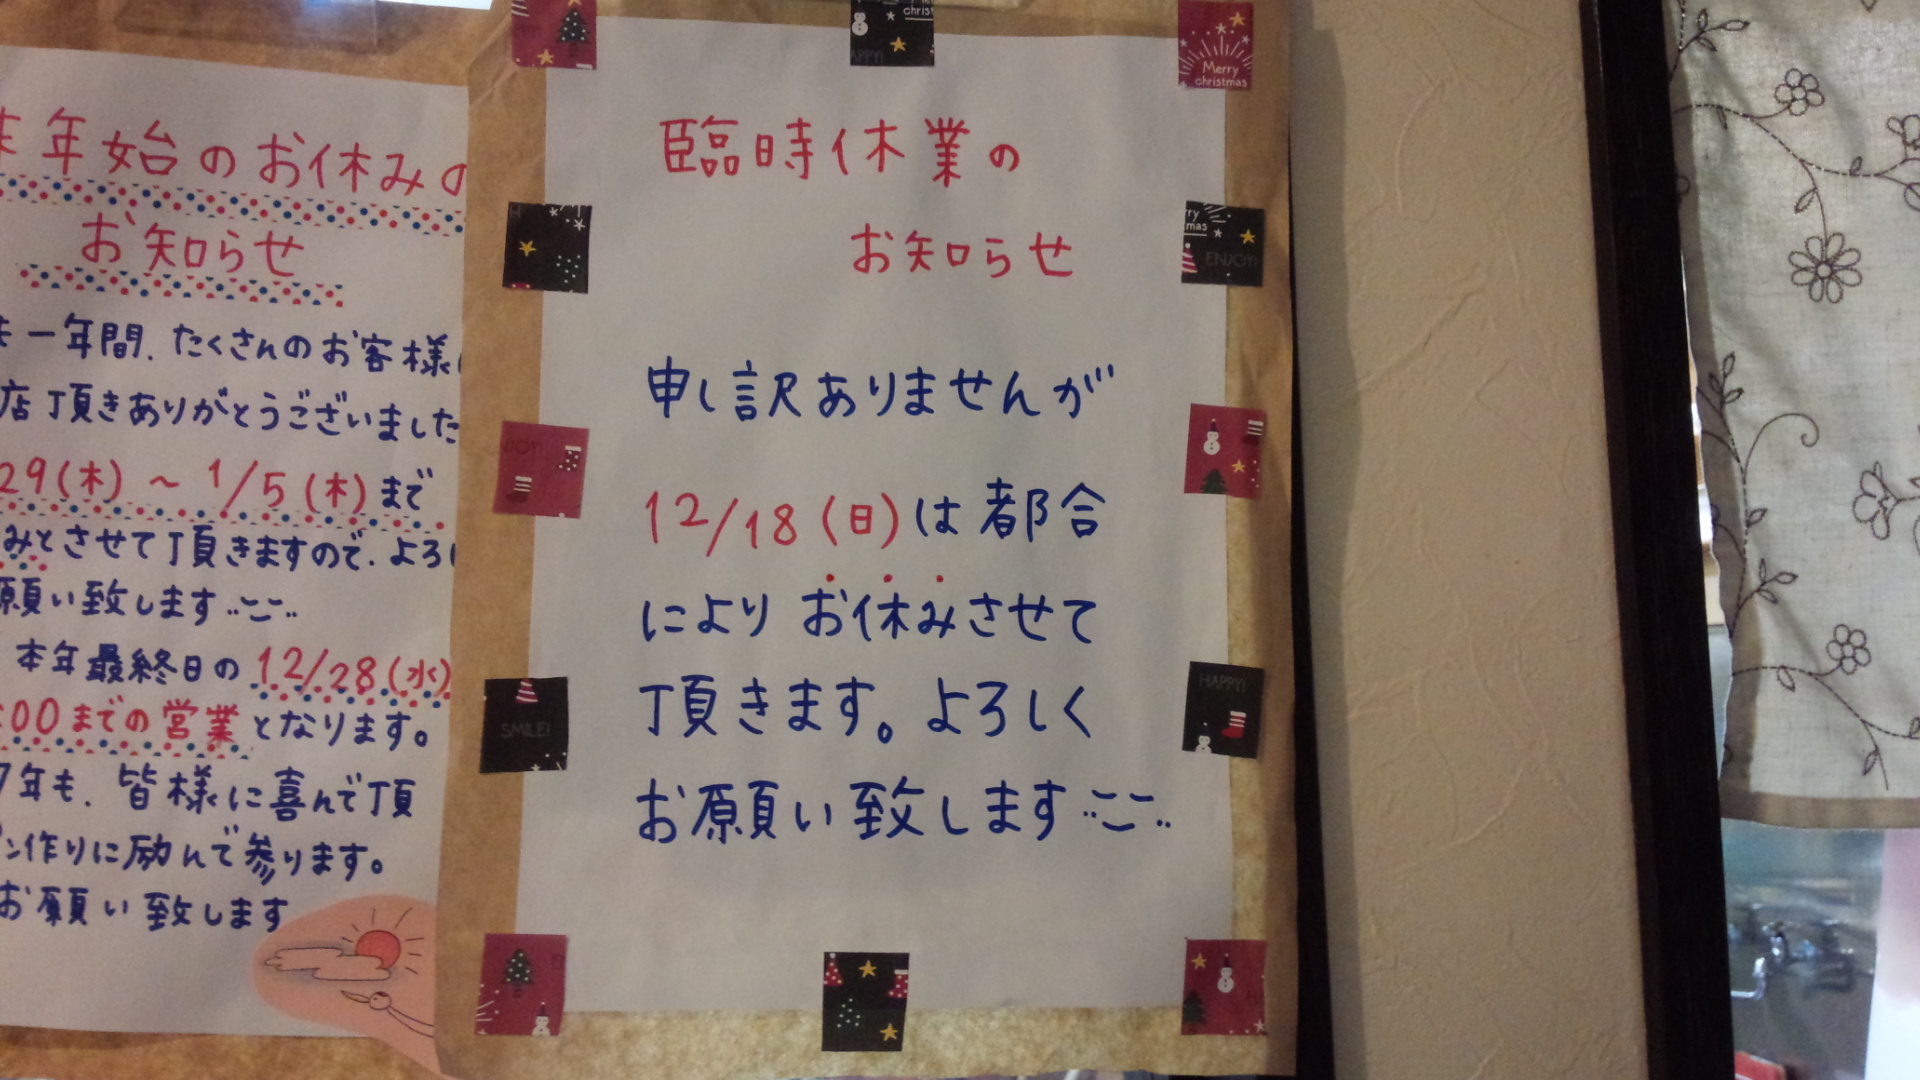 末年始のお休みの
お知らせ
一年間、たくさんのお客様
店頂きありがとうございました
29(木)～1/5(木)まで
みとさせて頂きますので、よろし
願い致します
本年最終日の12/28(水)
:00までの営業となります。
7年も、皆様に喜んで頂
ン作りに励んで参ります。
お願い致します
臨時休業の
お知らせ
申し訳ありませんが
12/18(日)は都合
によりお休みさせて
頂きます。よろしく
お願い致します
Merry
christmas
ENJOY!
SMILE!
HAPPY!